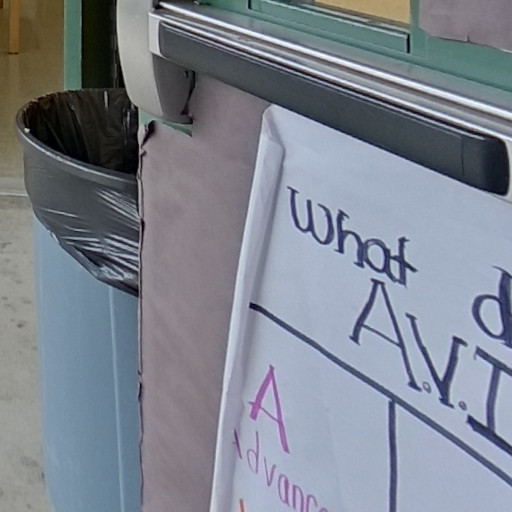 What
A.V.I
A
Advance